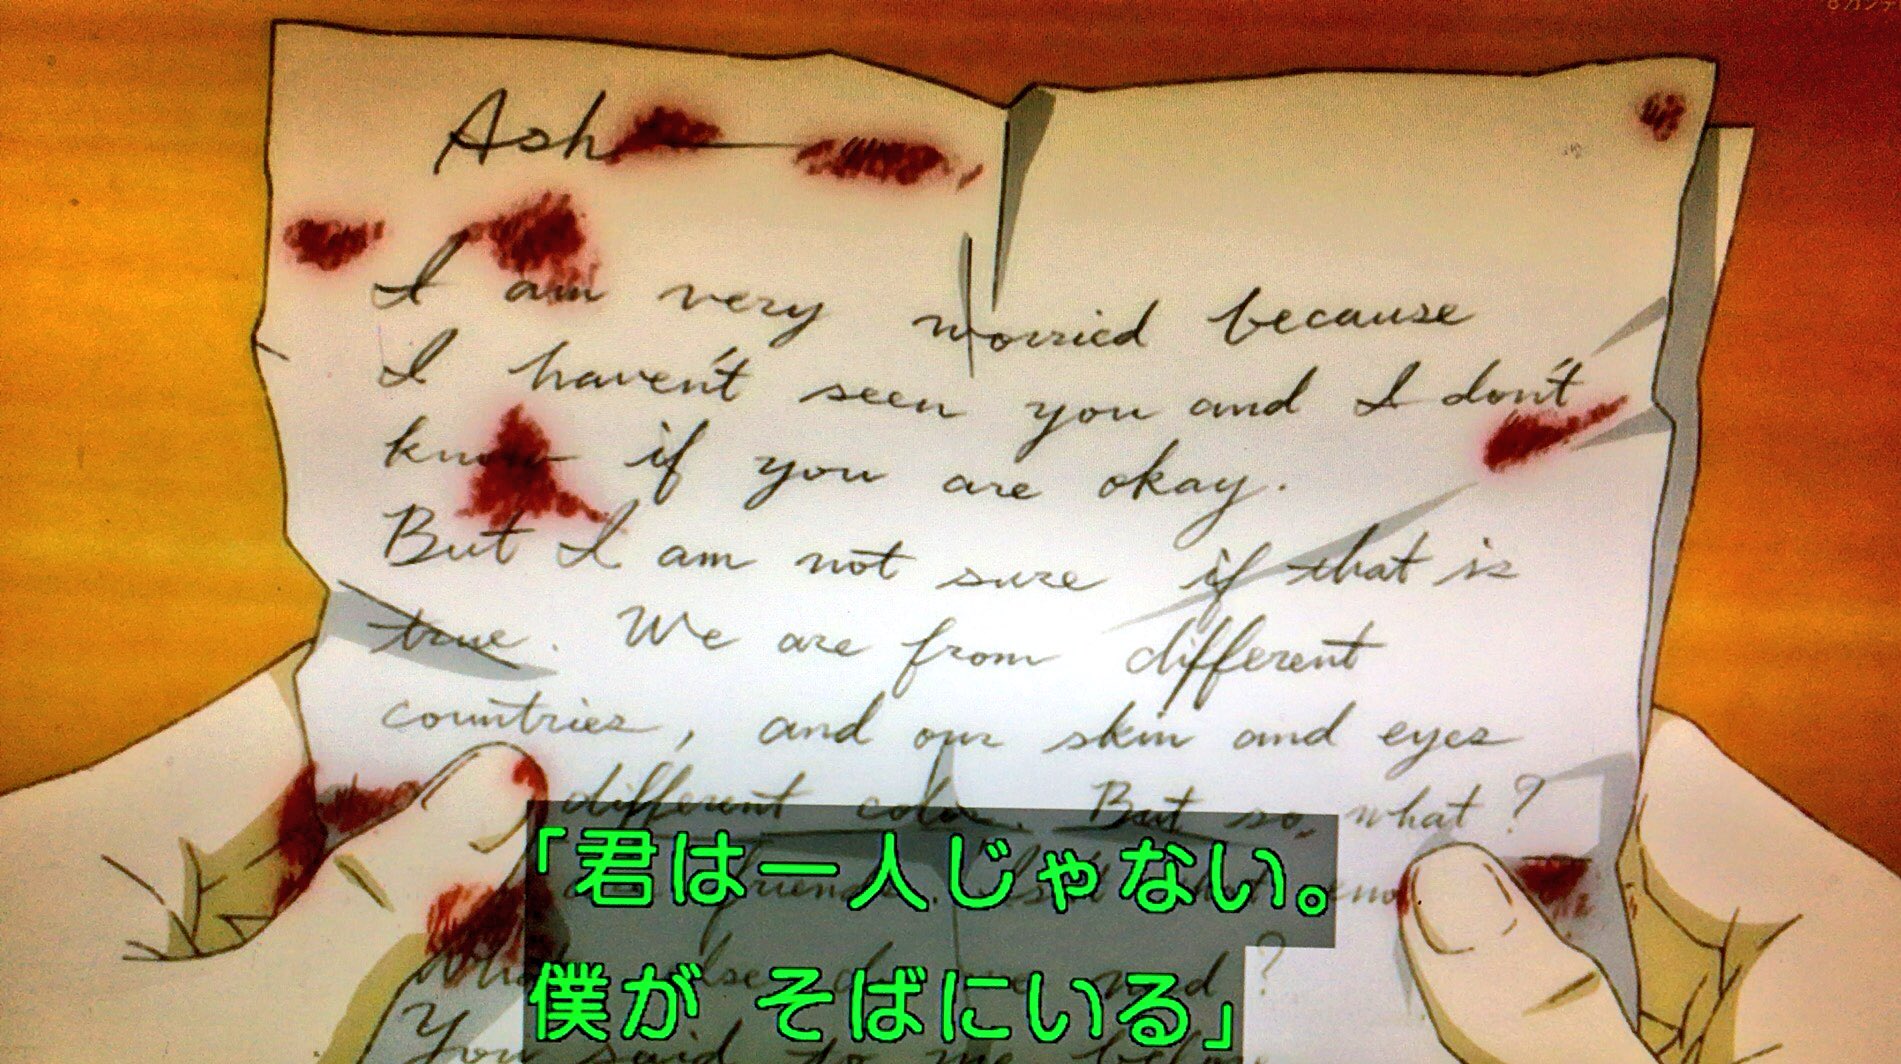 Ash
I am very worried because
I haven't seen you and I don't
know if you are okay.
But I am not sure if that is
true. We are from different
countries, and our skin and eyes
different color. But so, what?
friends.
「君は一人じゃない。
else do we need?
僕が そばにいる」
You said to me before